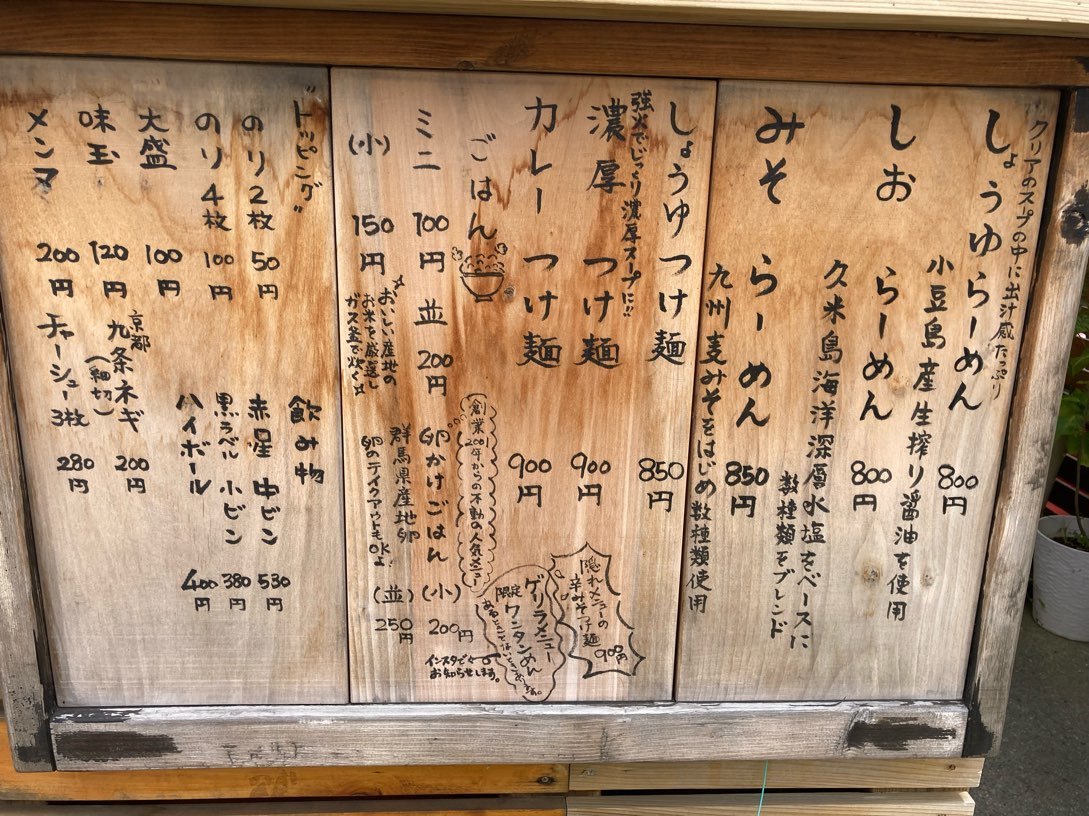 クリアのスープの中に出汁感たっぷり
しょうゆらーめん 800円
小豆島産生搾り醤油を使用
しお らーめん 800円
久米島海洋深層水塩をベースに
数種類をブレンド
みそ らーめん 850円
九州麦みそをはじめ数種類使用
しょうゆ つけ麺 850円
濃厚スープに!!
濃厚 つけ麺 900円
カレー つけ麺 900円
隠れメニューの
辛みそつけ麺
900円
ゲリラメニュー
限定 ワンタンめん
インスタで
お知らせします。
ごはん
創業200年からの不動の人気メニュー
ミニ 100円 並 200円
卵かけごはん (小) 200円
(並) 250円
群馬県産地卵
卵のテイクアウトもOKよ!
(小) 150円
☆おいしい産地の
お米を厳選し
ガス釜で炊く☆
"トッピング"
のり2枚 50円
のり4枚 100円
大盛 100円
味玉 120円
メンマ 200円
京都
九条ネギ 200円
(細切)
チャーシュー3枚 280円
飲み物
赤星 中ビン 530円
黒ラベル 小ビン 380円
ハイボール 400円